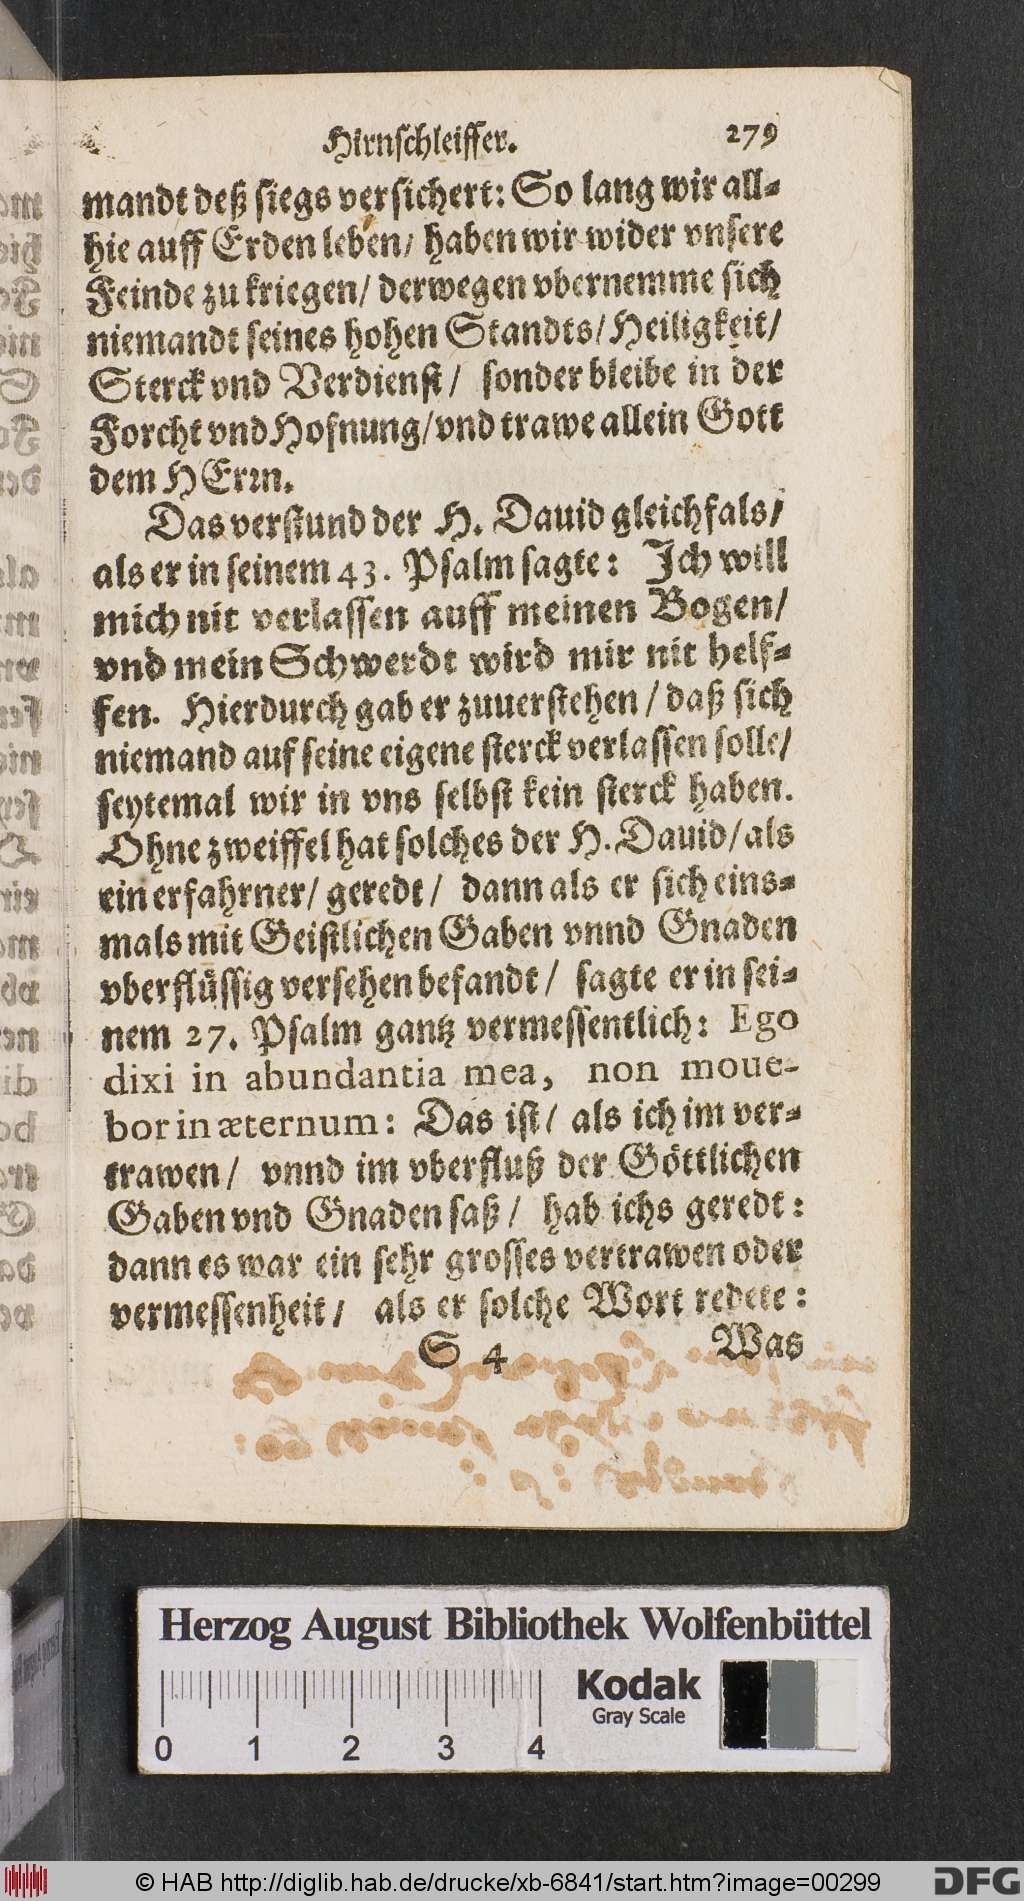 Hirnschleiffer. 279
mandt deß siegs versichert: So lang wir all-
hie auff Erden leben/ haben wir wider vnsere
Feinde zu kriegen/ derwegen vbernemme sich
niemandt seines hohen Standts/ Heiligkeit/
Sterck vnd Verdienst/ sonder bleibe in der
Forcht vnd Hofnung/ vnd trawe allein Gott
dem HErrn.
Das verstund der H. Dauid gleichfals/
als er in seinem 43. Psalm sagte: Ich will
mich nit verlassen auff meinen Bogen/
vnd mein Schwerdt wird mir nit helf-
fen. Hierdurch gab er zuuerstehen/ daß sich
niemand auf seine eigene sterck verlassen solle/
seytemal wir in vns selbst kein sterck haben.
Ohne zweiffel hat solches der H. Dauid/ als
ein erfahrner/ geredt/ dann als er sich eins-
mals mit Geistlichen Gaben vnnd Gnaden
vberflüssig versehen befandt/ sagte er in sei-
nem 27. Psalm gantz vermessentlich: Ego
dixi in abundantia mea, non moue-
bor in æternum: Das ist/ als ich im ver-
trawen/ vnnd im vberfluß der Göttlichen
Gaben vnd Gnaden saß/ hab ichs geredt:
dann es war ein sehr grosses vertrawen oder
vermessenheit/ als er solche Wort redete:
S 4 Was
Herzog August Bibliothek Wolfenbüttel
Kodak
Gray Scale
0 1 2 3 4
© HAB http://diglib.hab.de/drucke/xb-6841/start.htm?image=00299
DFG